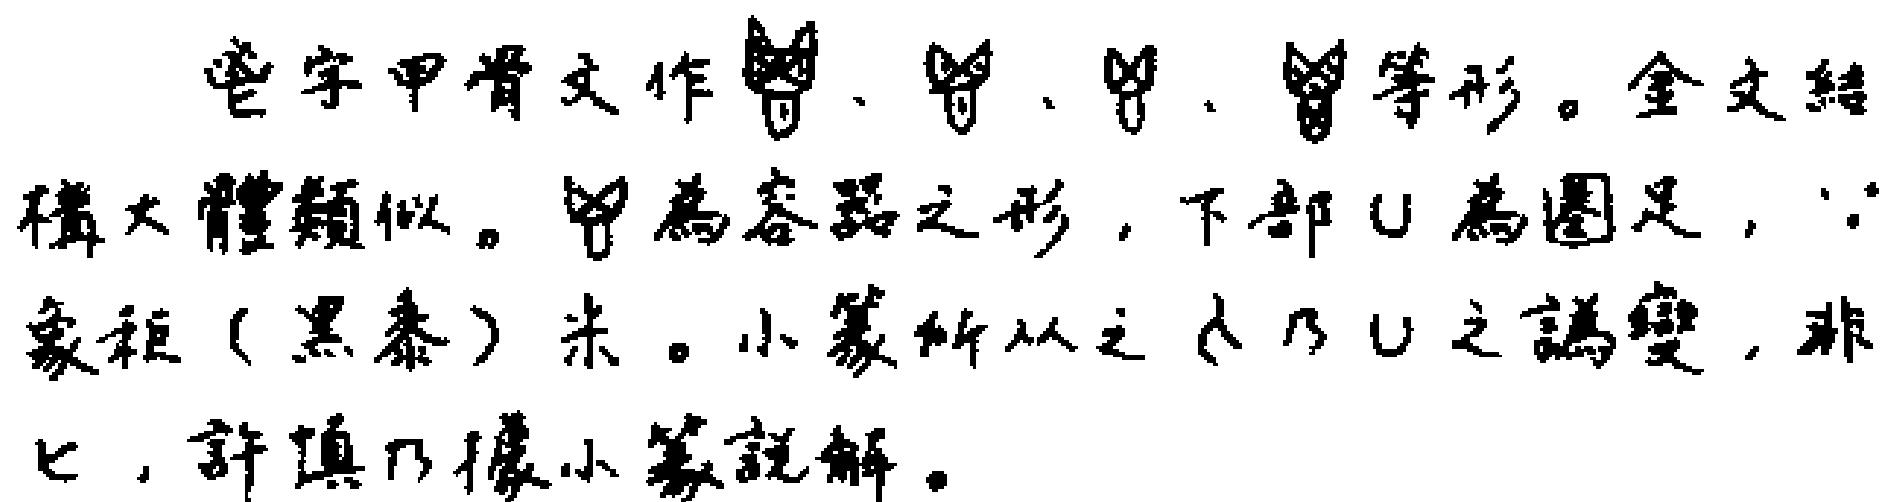 鬯字甲骨文作、、、等形。金文結
構大體類似。為容器之形,下部U為圈足,∵
象秬(黑黍)米。小篆所从之乃U之譌變,非
匕,許慎乃據小篆說解。